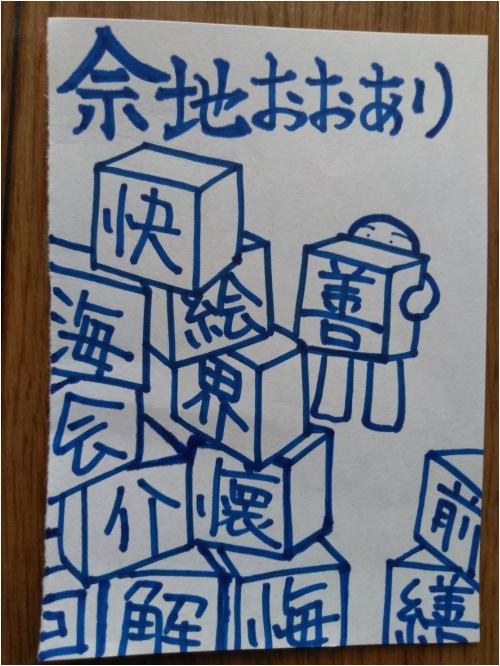 余地おおあり
快
絵
善
海
界
介
懐
前
解
悔
繕